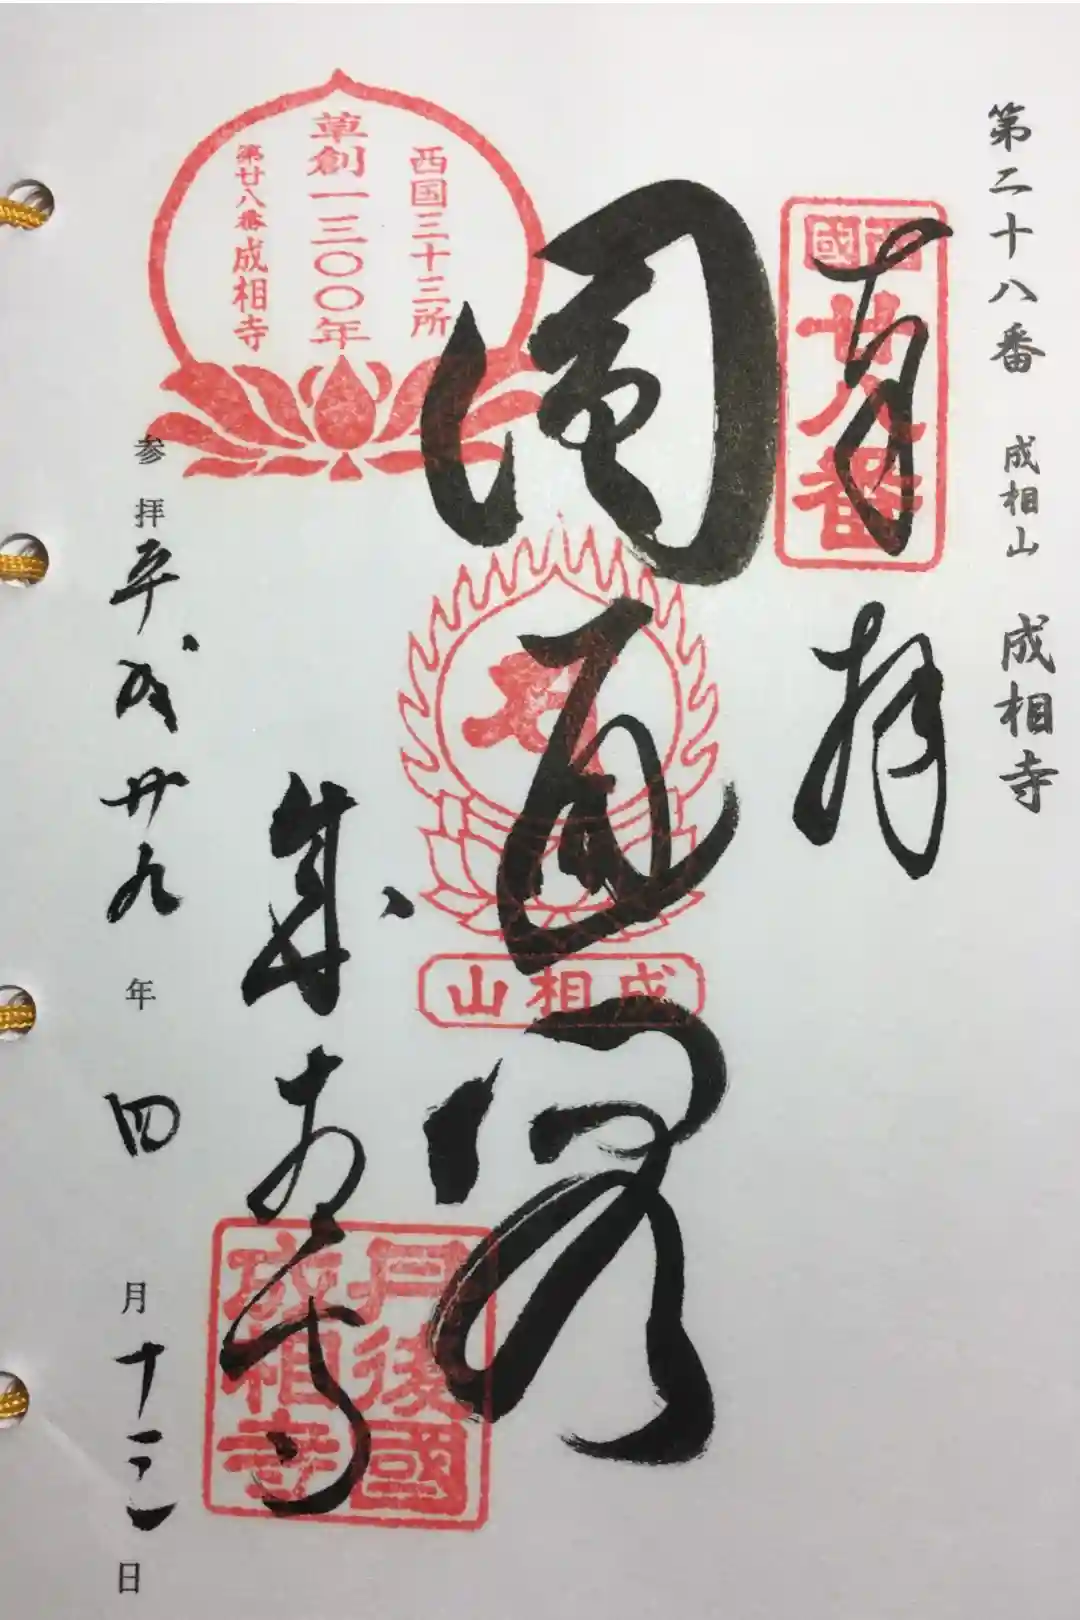 第二十八番 成相山 成相寺
西國
廿八番
奉拝
圓通閣
成相山
西国三十三所
草創一三〇〇年
第廿八番成相寺
成相寺
丹後國
成相寺
参拝平成廿九年四月十三日